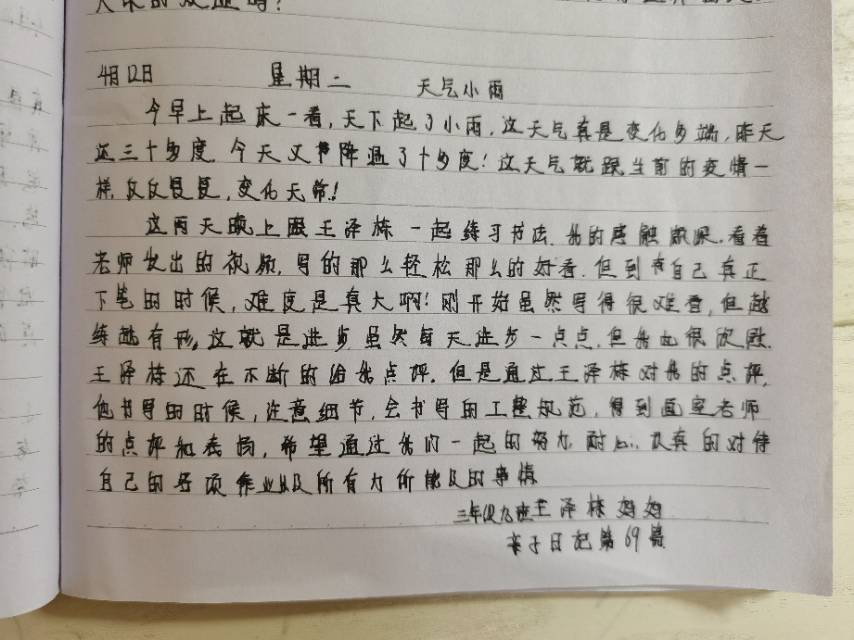 4月12日 星期二 天气小雨
今早上起床一看,天下起了小雨,这天气真是变化多端,昨天
还三十多度,今天又降温了十多度!这天气就跟当前的疫情一
样,反反复复,变化无常!
这两天晚上跟王泽栋一起练习书法,我的感触颇深,看着
老师发出的视频,写的那么轻松那么的好看,但到自己真正
下笔的时候,难度是真大啊!刚开始虽然写得很难看,但越
练越有形,这就是进步,虽然每天进步一点点,但我也很欣慰,
王泽栋还在不断的给我点评,但是通过王泽栋对我的点评,
他书写的时候,注意细节,会书写的工整规范,得到
老师
的点评和表扬,希望通过我们一起的努力,耐心、认真的对待
自己的各项作业以及所有力所能及的事情
三年级九班王泽栋妈妈
亲子日记第69篇